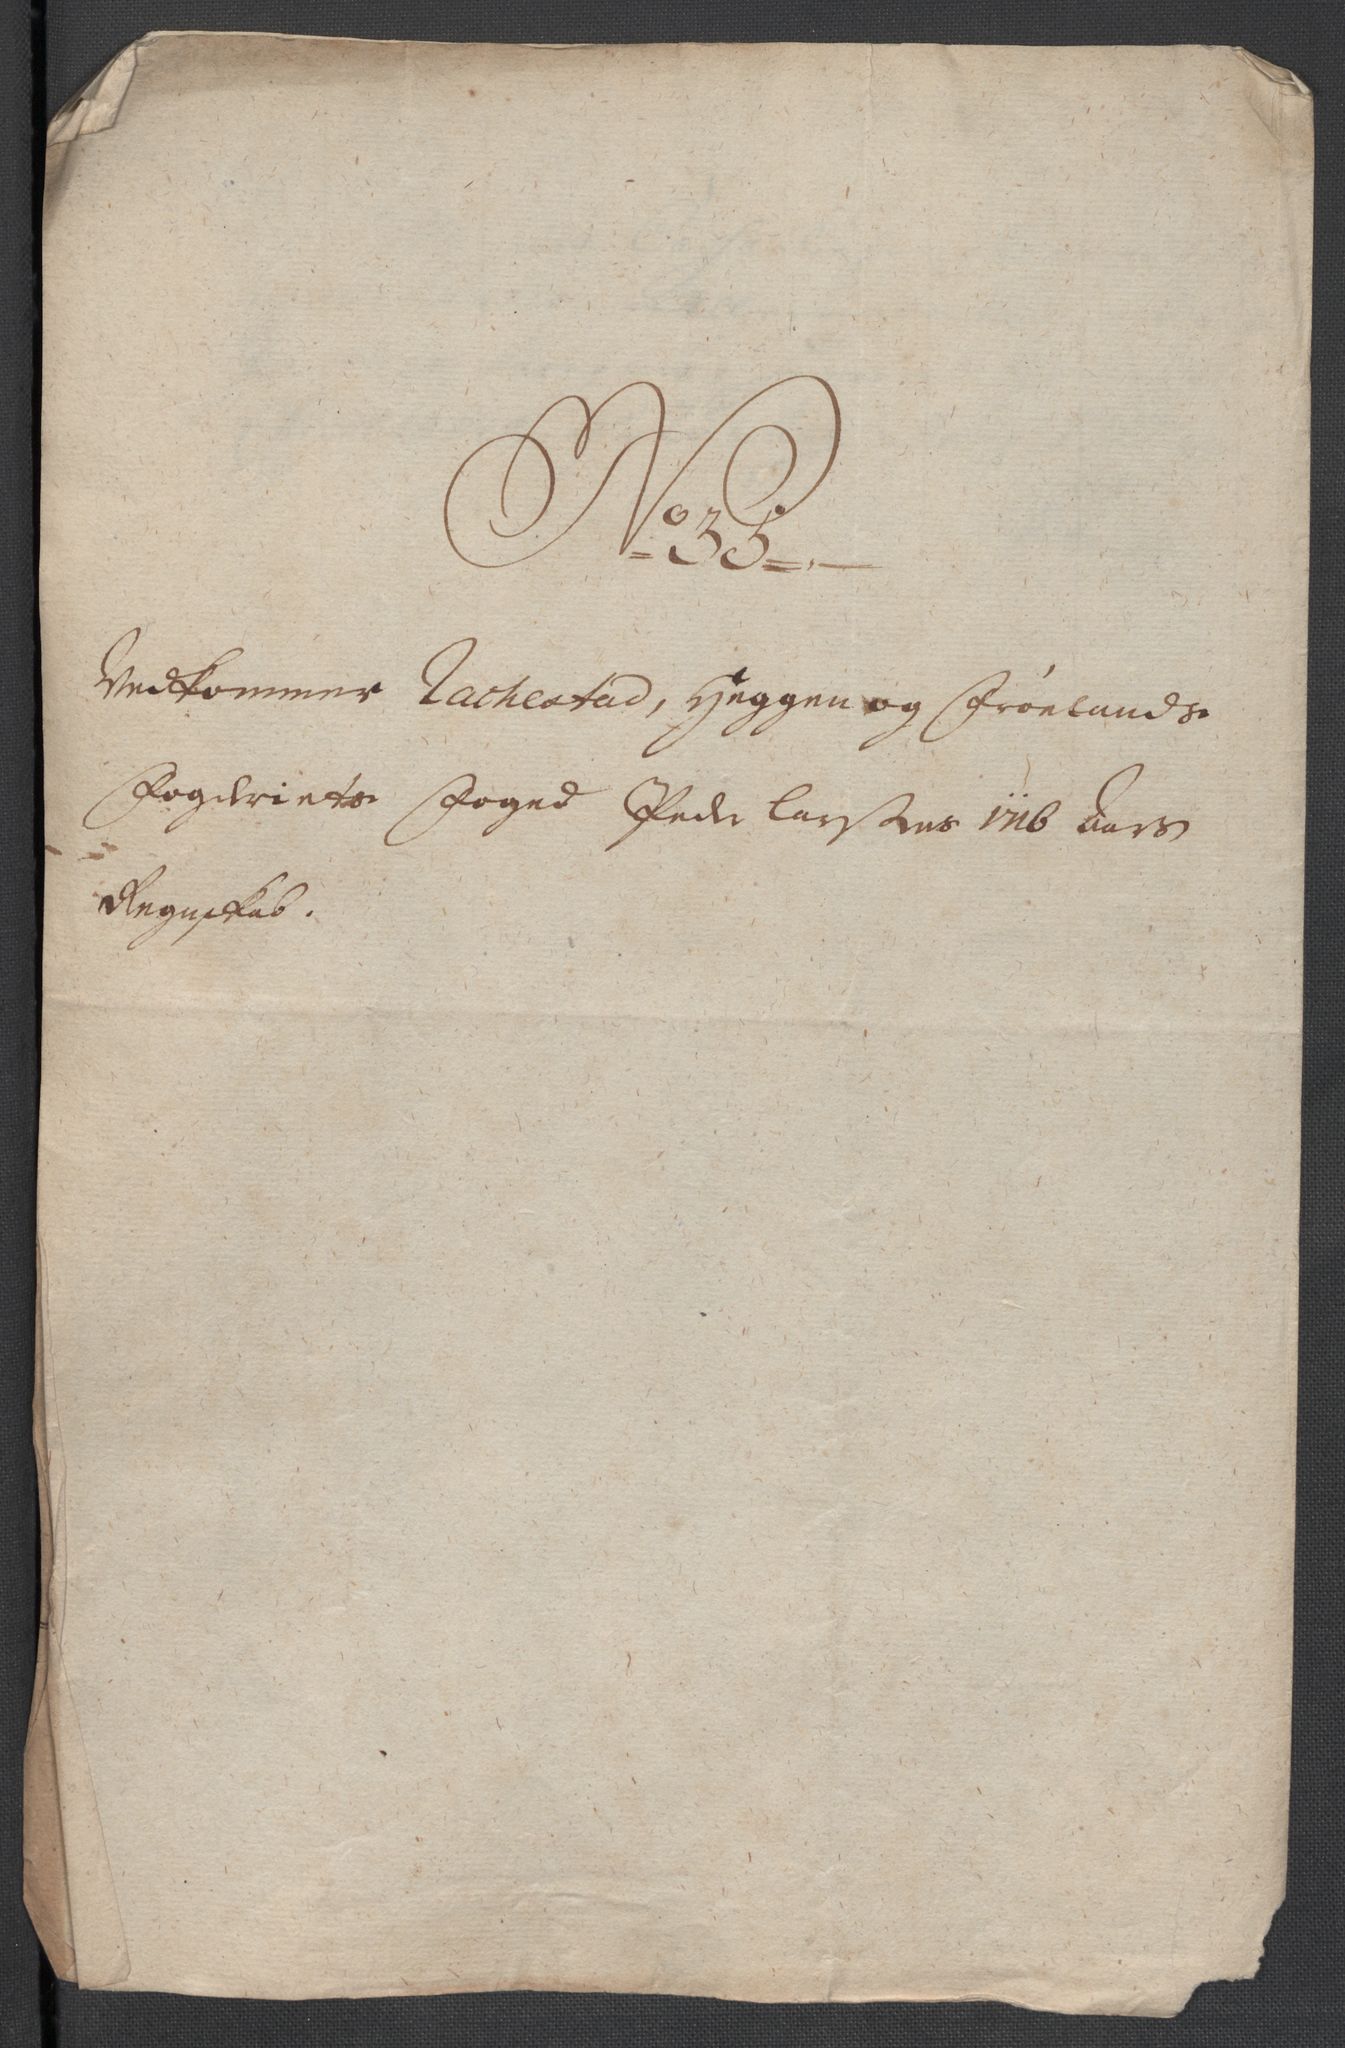 No 35
Vedkommer Rachestad, Heggen og Frönlands
Fogderiets Foged Peder Larssens 1716 Aars
Regnskab.